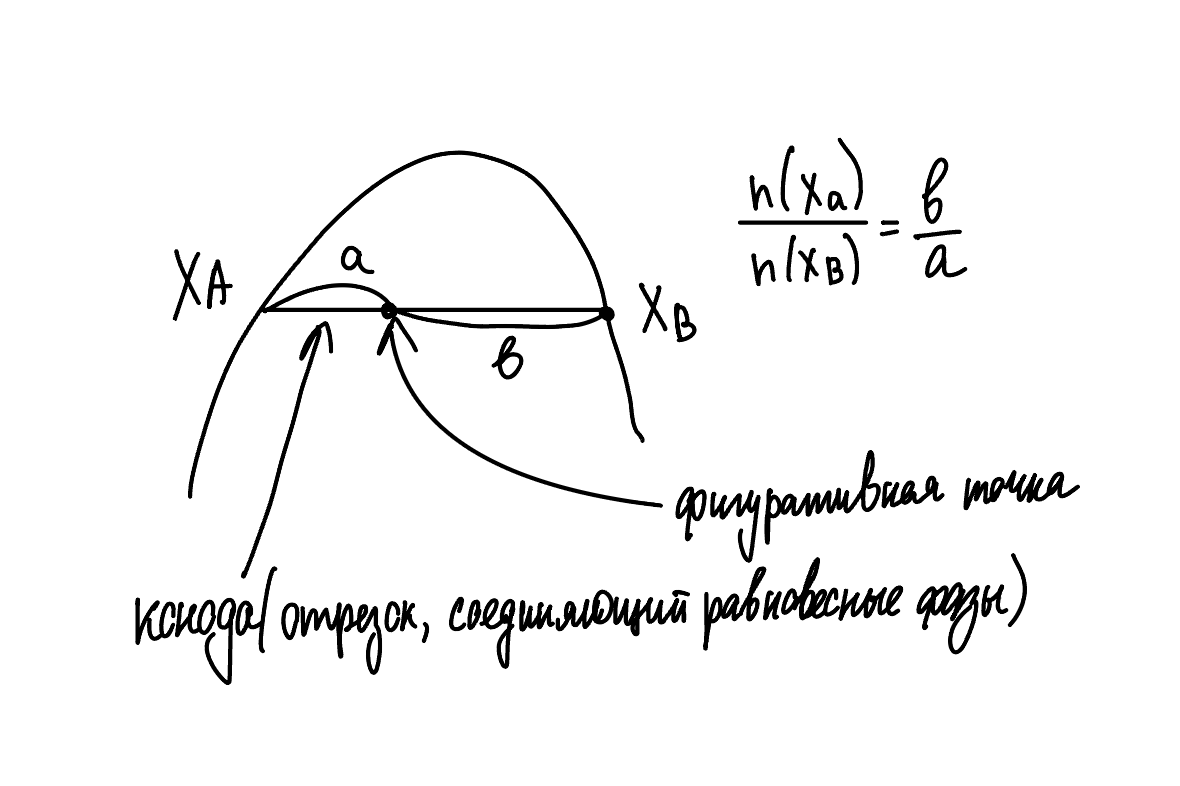 a
X_A
X_B
в
n(x_a) / n(x_B) = в / a
фигуративная точка
конода (отрезок, соединяющий равновесные фазы)